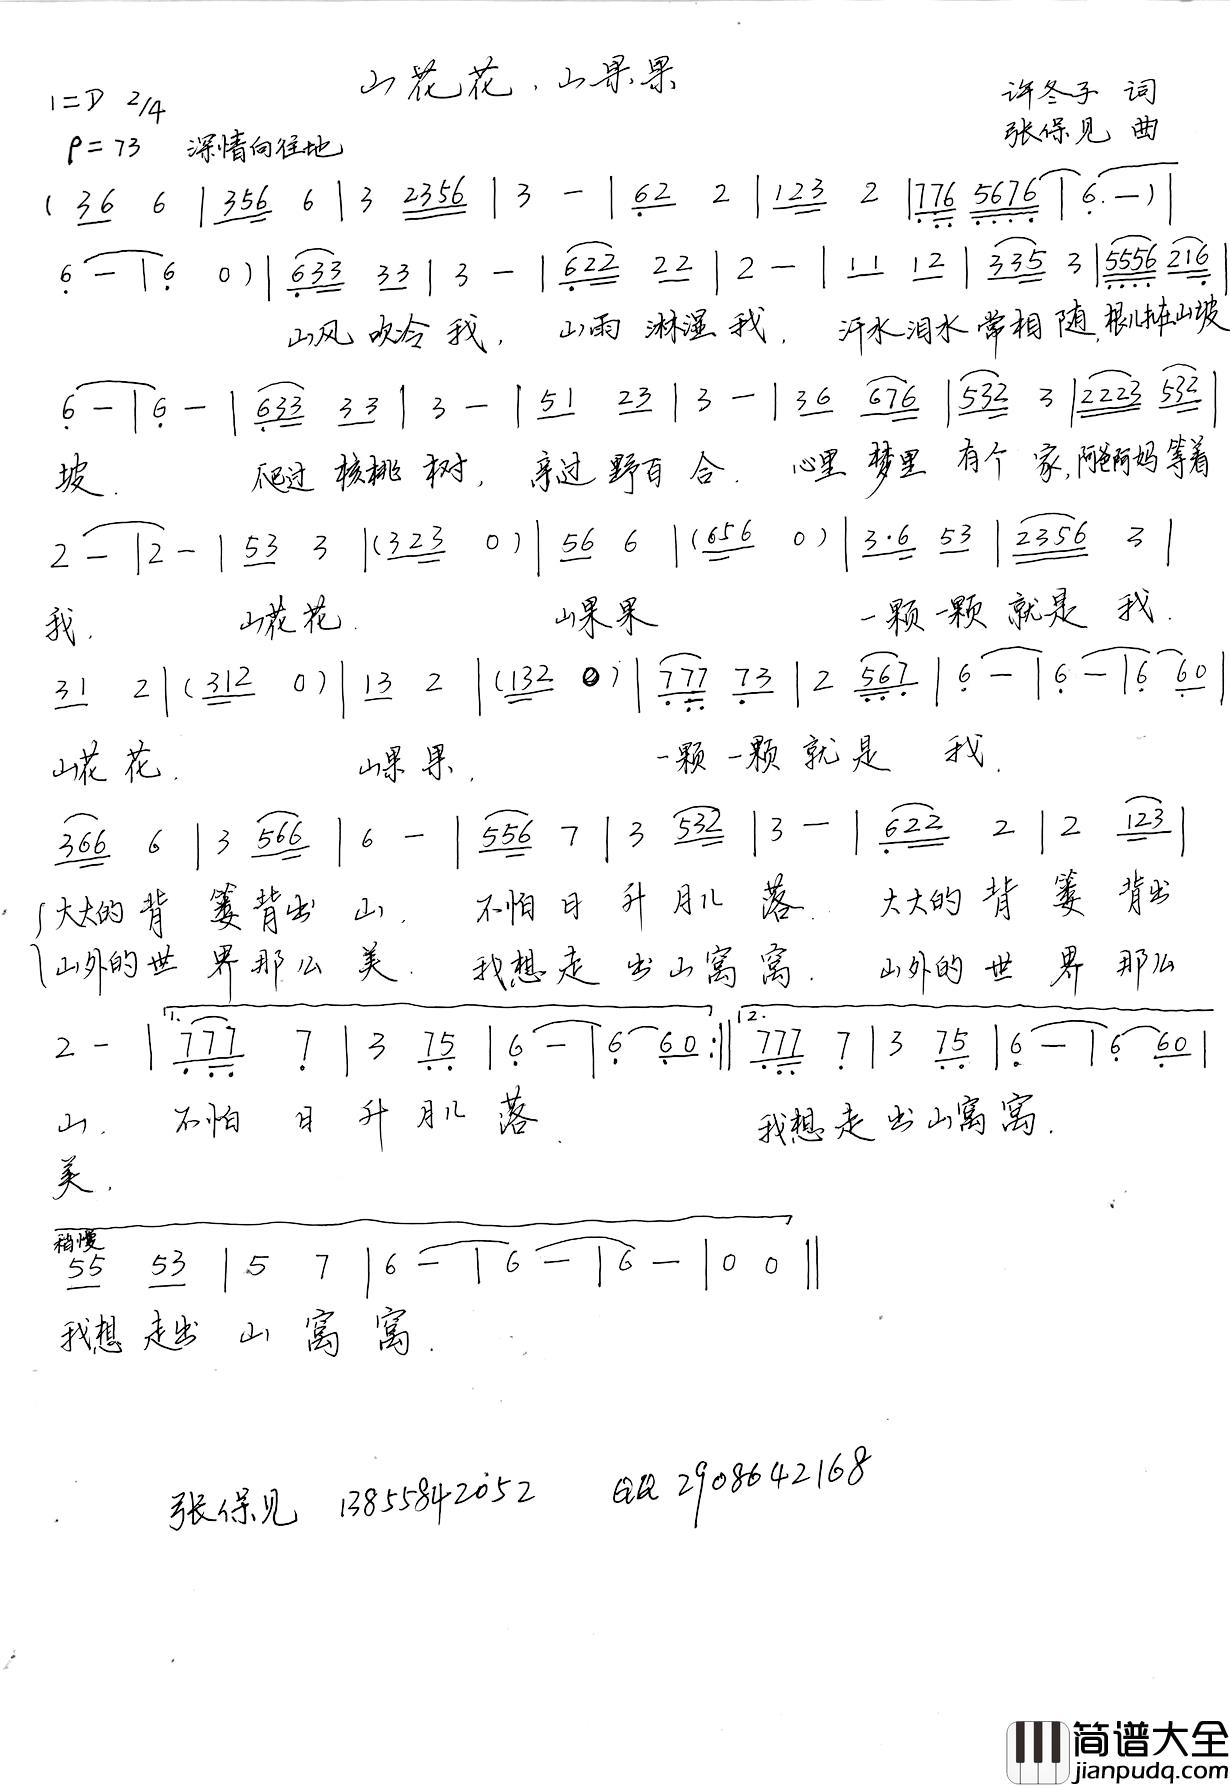 山花花、山果果
1=D 2/4
许冬子 词
♩=73 深情向往地
张保见 曲
( 36 6 | 356 6 | 3 2356 | 3 — | 62 2 | 123 2 | 776 5676 | 6. — ) |
6 — | 6 0 ) | 633 33 | 3 — | 622 22 | 2 — | 11 12 | 335 3 | 5556 216 |
山风 吹冷 我, 山雨 淋湿 我. 汗水 泪水 常相 随, 根儿扎在山坡
6 — | 6 — | 633 33 | 3 — | 51 23 | 3 — | 36 676 | 532 3 | 2223 532 |
坡. 爬过 核桃 树, 亲过 野百 合. 心里 梦里 有个 家, 阿爸阿妈 等着
2 — | 2 — | 53 3 | (323 0) | 56 6 | (656 0) | 3·6 53 | 2356 3 |
我. 山花花. 山果果 一颗 一颗 就是 我.
31 2 | (312 0) | 13 2 | (132 0) | 777 73 | 2 567 | 6 — | 6 — | 6 60 |
山花 花. 山果 果. 一颗 一颗 就是 我.
366 6 | 3 566 | 6 — | 556 7 | 3 532 | 3 — | 622 2 | 2 123 |
大大的 背 篓 背出 山. 不怕 日 升 月儿 落. 大大的 背 篓 背出
山外的 世 界 那么 美. 我想 走 出 山窝 窝. 山外的 世 界 那么
2 — | 1. 777 7 | 3 75 | 6 — | 6 60 :|| 2. 777 7 | 3 75 | 6 — | 6 60 |
山. 不怕 日 升 月儿 落. 我想 走 出 山窝 窝.
美.
稍慢
55 53 | 5 7 | 6 — | 6 — | 6 — | 0 0 ||
我想 走出 山 窝 窝.
张保见 13855842052 QQ 2908642168
简谱大全
jianpudq.com